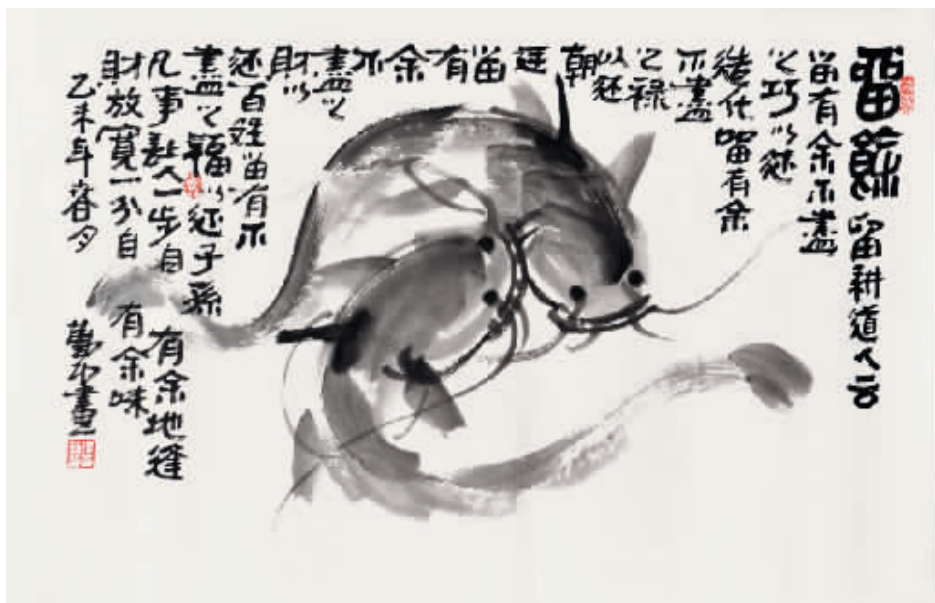 留餘 留耕道人云
留有余不盡
之巧以还
造化留有余
不盡
之禄
以还
朝
廷
留
有
余
不
盡之
財以
还百姓留有不
盡之福以还子孫
凡事讓人一步自有余地縫
財放寬一分自有余味
乙未年春月
畫